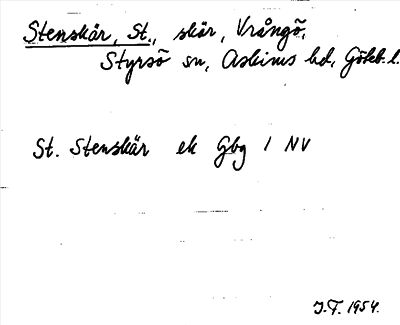 Stenskär, St., skär, Vrångö,
Styrsö sn, Askims hd, Göteb. l.
St. Stenskär ek Gbg 1 NV
J.F. 1954.